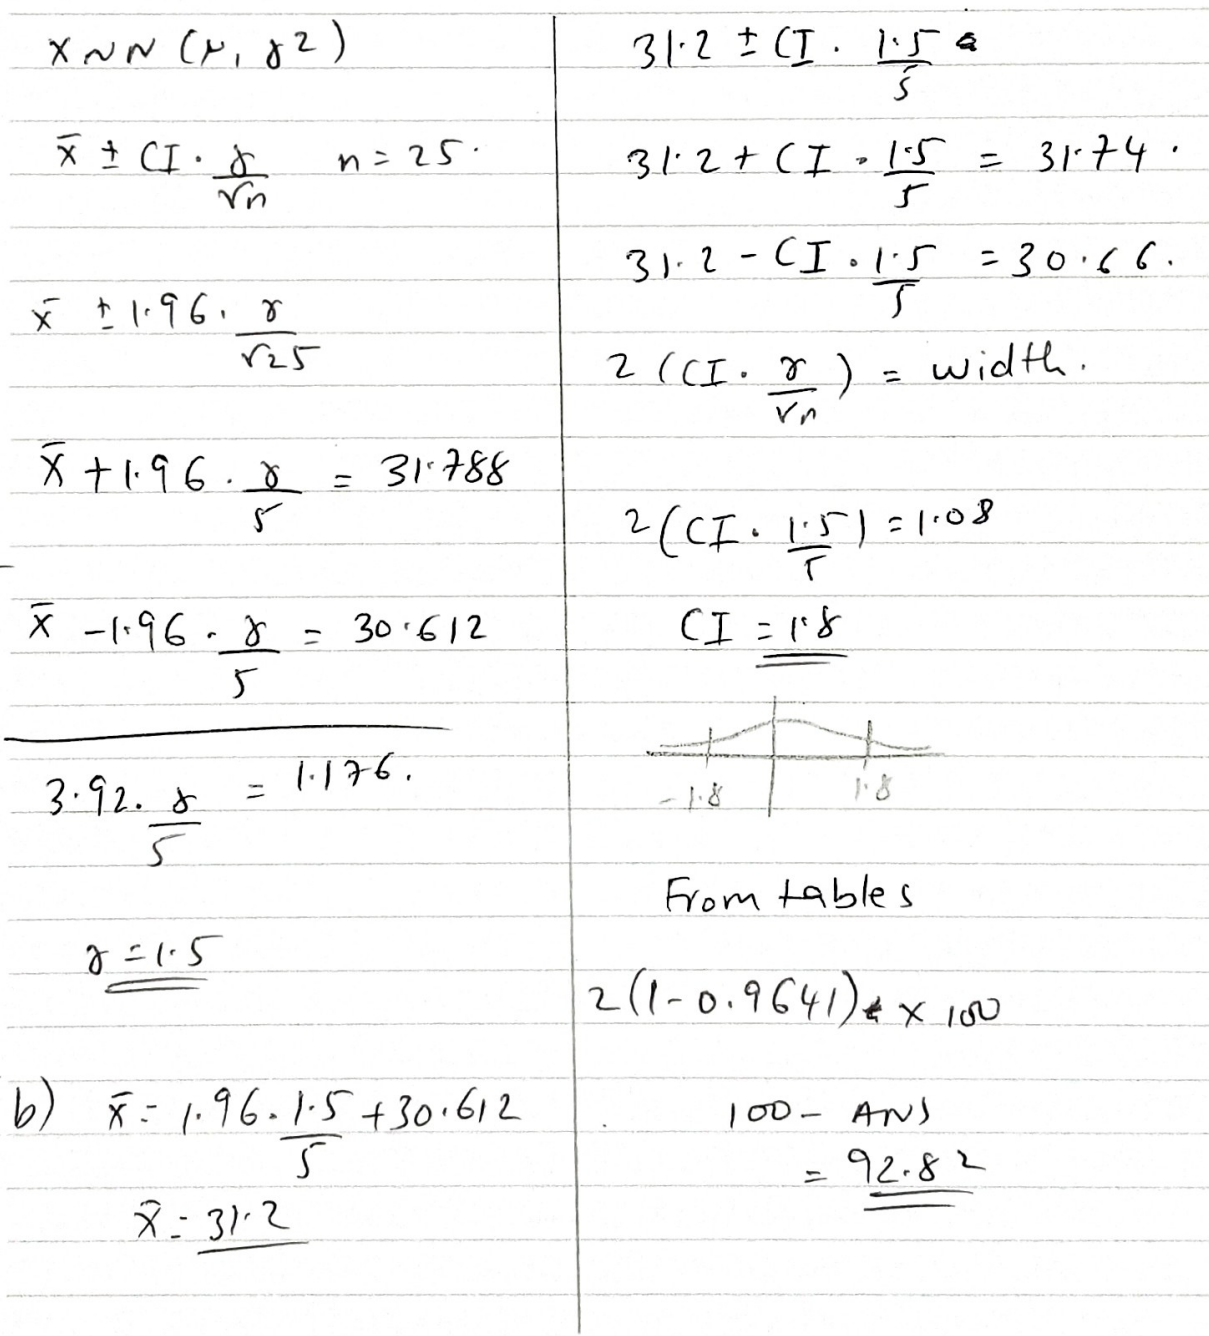 X ~ N (μ, γ²)
x̄ ± CI · γ/√n n = 25.
x̄ ± 1.96 · γ/√25
x̄ + 1.96 · γ/5 = 31.788
x̄ - 1.96 · γ/5 = 30.612
3.92 · γ/5 = 1.176.
γ = 1.5
b) x̄ = 1.96 · 1.5/5 + 30.612
x̄ = 31.2
31.2 ± CI · 1.5/5
31.2 + CI · 1.5/5 = 31.74.
31.2 - CI · 1.5/5 = 30.66.
2 (CI · γ/√n) = width.
2 (CI · 1.5/5) = 1.08
CI = 1.8
-1.8 1.8
From tables
2(1-0.9641) × 100
100 - ANS
= 92.82